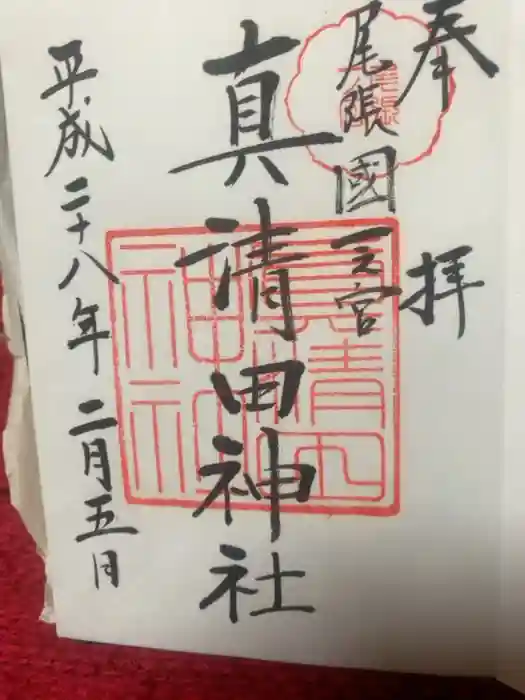 奉拝
尾張國一之宮
真清田神社
平成二十八年二月五日
真清田
神社